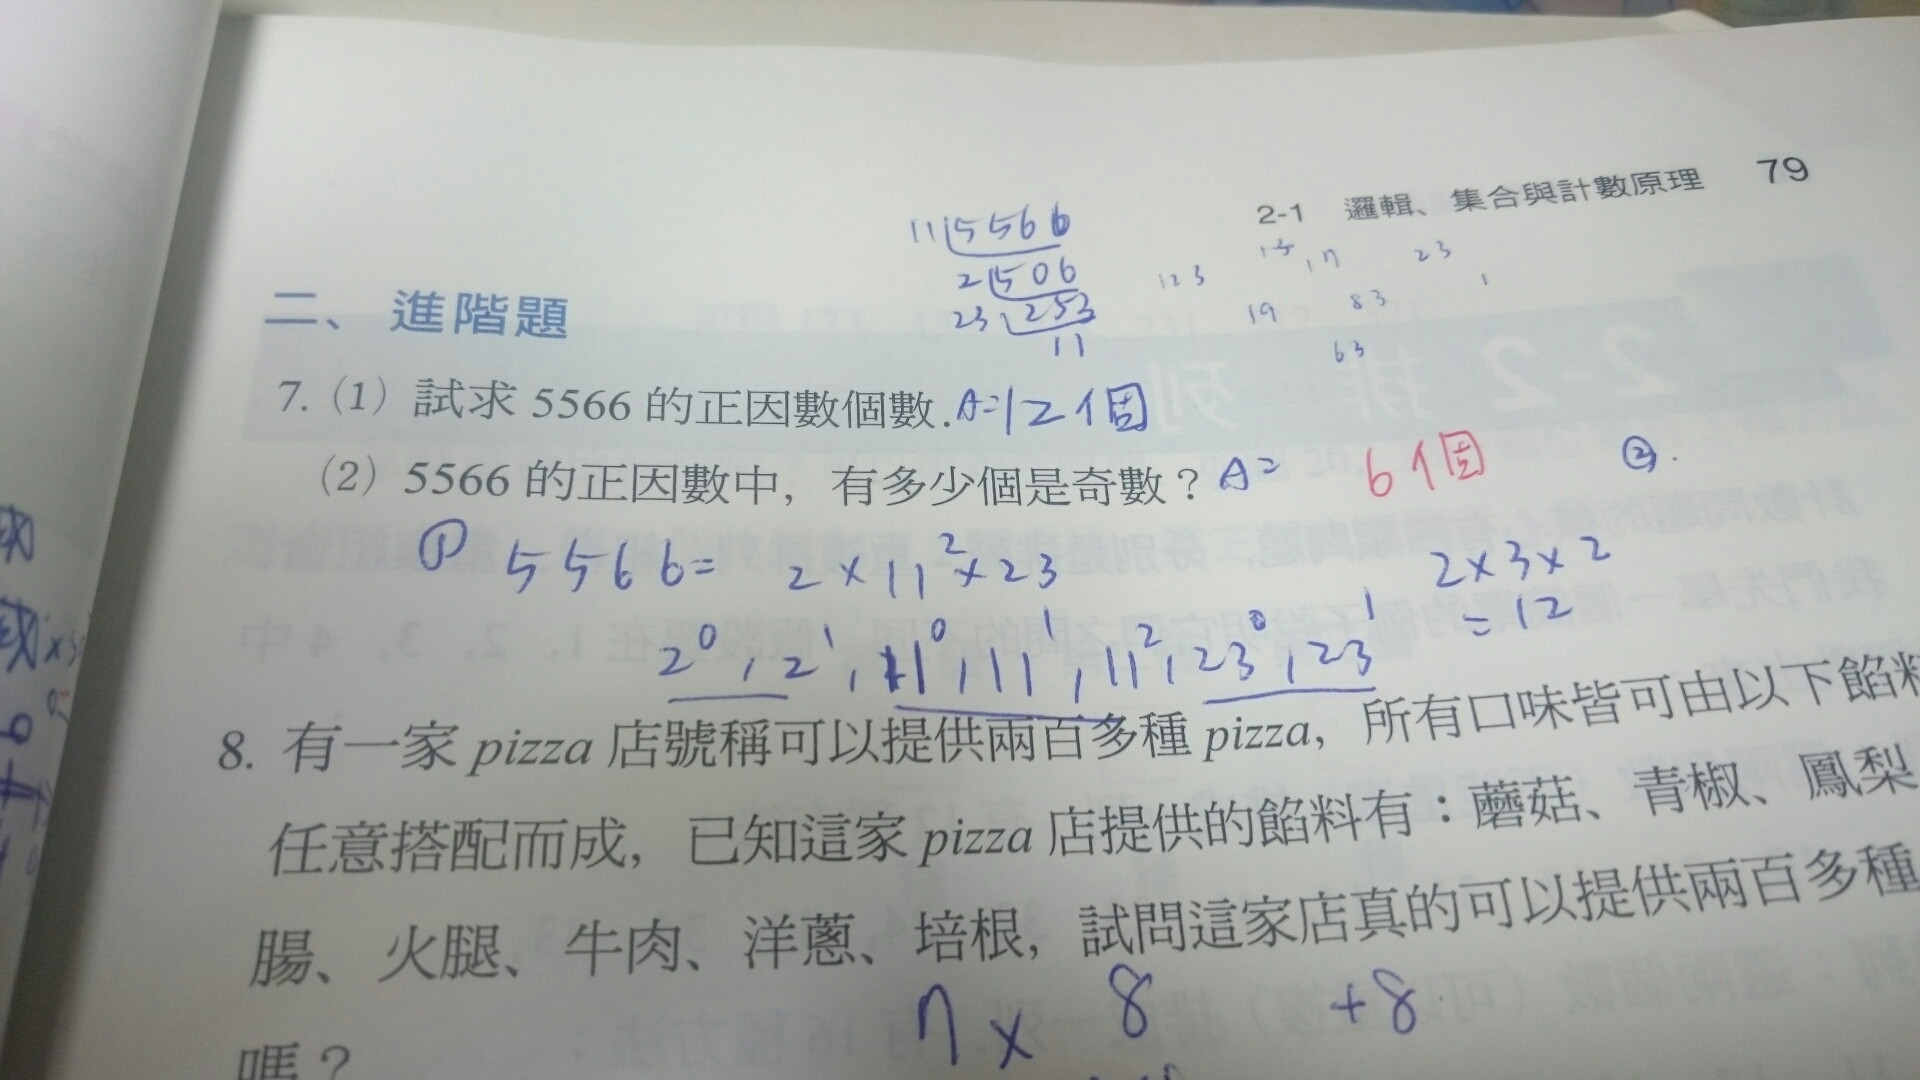 2-1 邏輯、集合與計數原理 79
11 5566
2 506
23 253
11
123 13 17 23
19 83 1
63
二、進階題
7. (1) 試求 5566 的正因數個數. A=12個
(2) 5566 的正因數中，有多少個是奇數？A= 6個 ②.
① 5566= 2×11²×23 2×3×2
=12
2⁰, 2¹, 11⁰, 11¹, 11², 23⁰, 23¹
8. 有一家 pizza 店號稱可以提供兩百多種 pizza，所有口味皆可由以下餡料
任意搭配而成，已知這家 pizza 店提供的餡料有：蘑菇、青椒、鳳梨
腸、火腿、牛肉、洋蔥、培根，試問這家店真的可以提供兩百多種
嗎？
7× 8 +8